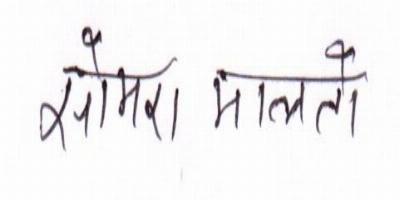 सोमरा मालतो